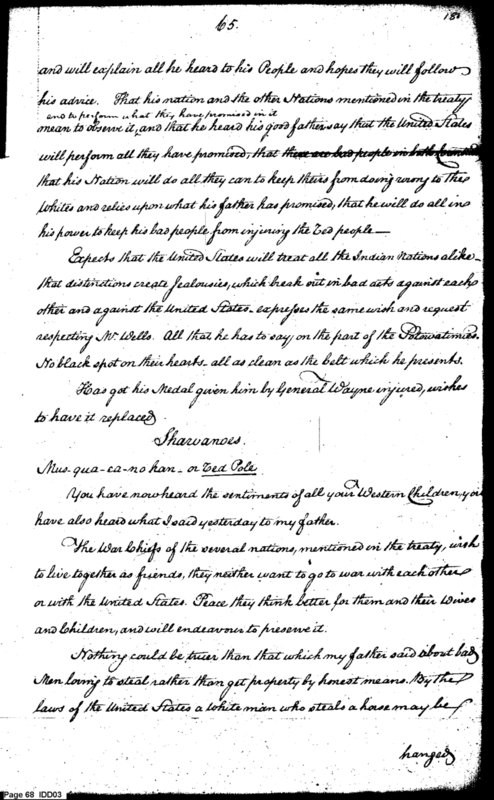 65.
180
and will explain all he heard to his People and hopes they will follow
his advice. That his nation and the other Nations mentioned in the treaty
and to perform what they have promised in it
mean to observe it, and that he heard his good father say that the United States
will perform all they have promised, that there are bad people in both Countries
that his Nation will do all they can to keep theirs from doing wrong to the
Whites and relies upon what his father has promised, that he will do all in
his power to keep his bad people from injuring the Red people—
Expects that the United States will treat all the Indian Nations alike—
that distinctions create Jealousies, which break out in bad acts against each
other and against the United States— expresses the same wish and request
respecting Mr. Wells. All that he has to say on the part of the Potowatimies.
No black spot on their hearts— all as clean as the belt which he presents.
Has got his Medal given him by General Wayne injured, wishes
to have it replaced
Shawanoes.
Mus-qua-ca-no kan— or Red Pole
You have now heard the sentiments of all your Western Children, you
have also heard what I said yesterday to my father.
The War Chiefs of the several nations, mentioned in the treaty, wish
to live together as friends, they neither want to go to war with each other
or with the United States. Peace they think better for them and their Wives
and Children, and will endeavour to preserve it.
Nothing could be truer than that which my father said about bad
Men loving to steal rather than get property by honest means. By the
laws of the United States a White man who steals a horse may be
hanged
Page 68 IDD03